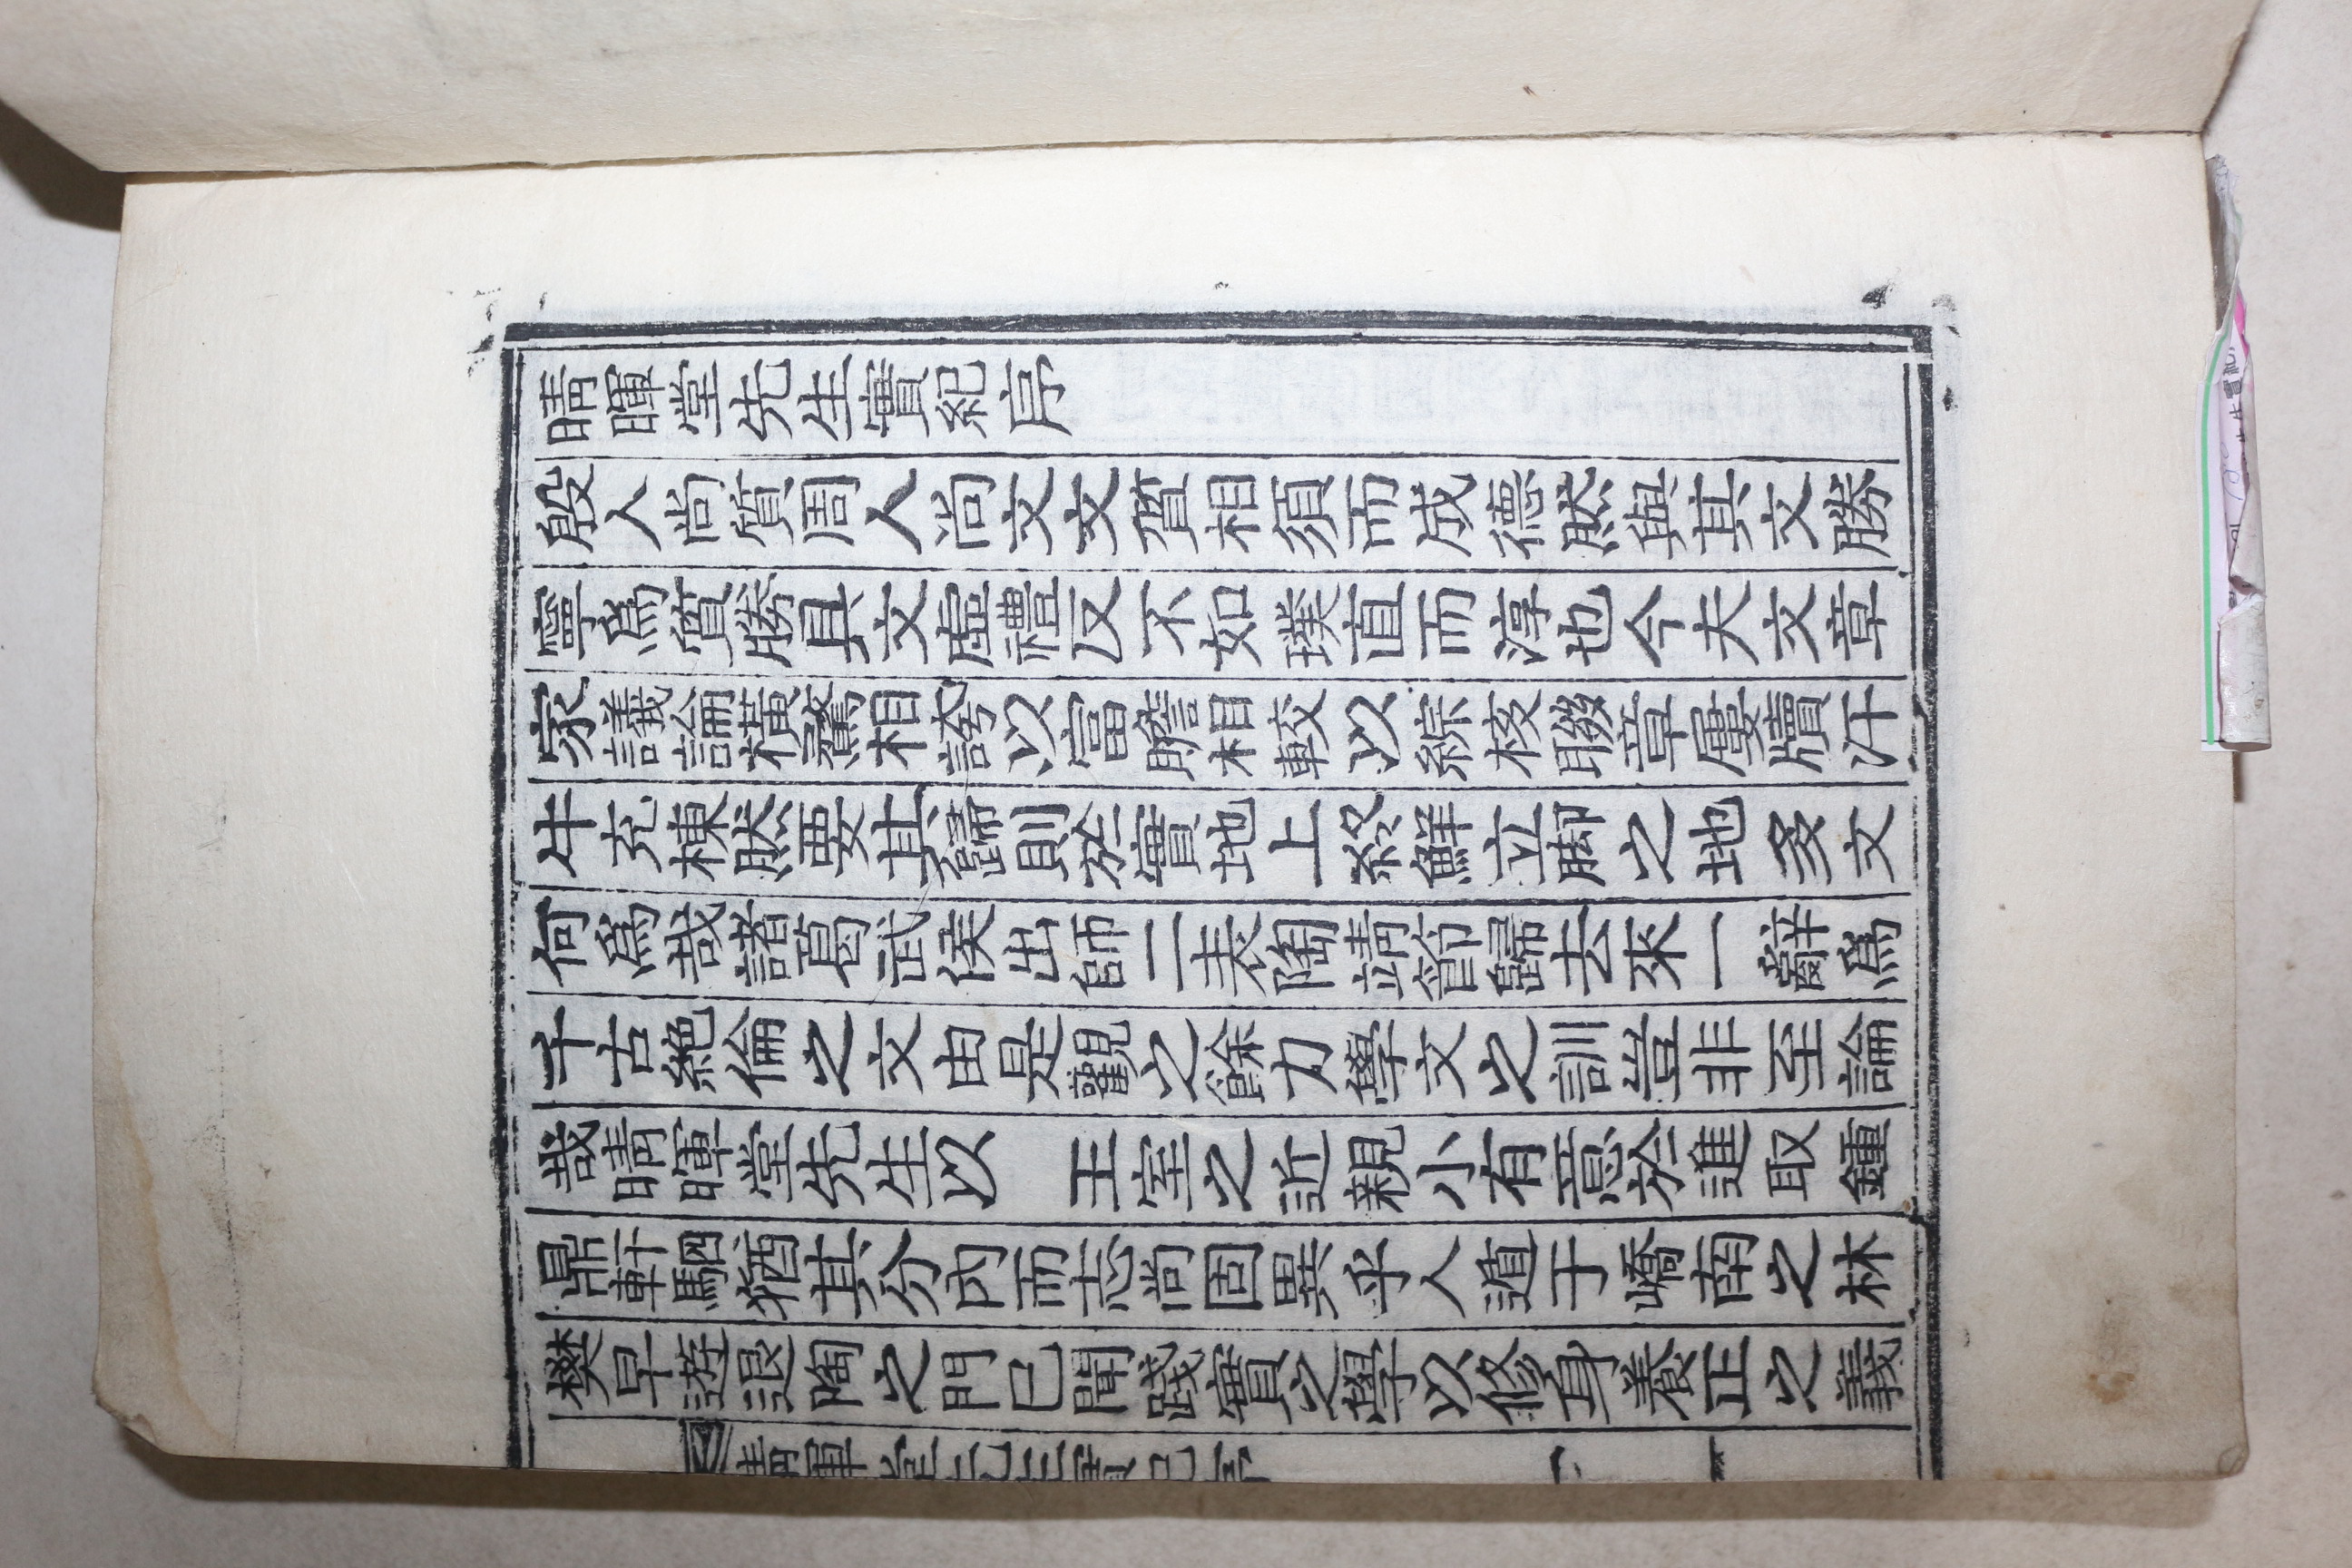 晴暉堂先生實紀序
殷人尚質周人尚文文質相須而成德然與其文勝
寧爲質勝具文虛禮反不如璞直而淳也今夫文章
家議論橫騖相誇以富贍相較以綜核聯章屢牘汗
牛充棟然要其歸則於實地上終鮮立脚之地多文
何爲哉諸葛武侯出師二表陶靖節歸去來一辭爲
千古絕倫之文由是觀之餘力學文之訓豈非至論
哉晴暉堂先生以 王室之近親小有意於進取鍾
鼎軒駟猶其分內而志尚固異乎人遁于嶠南之林
樊早遊退陶之門已聞踐實之學以修身養正之義
晴暉堂先生實紀序 一